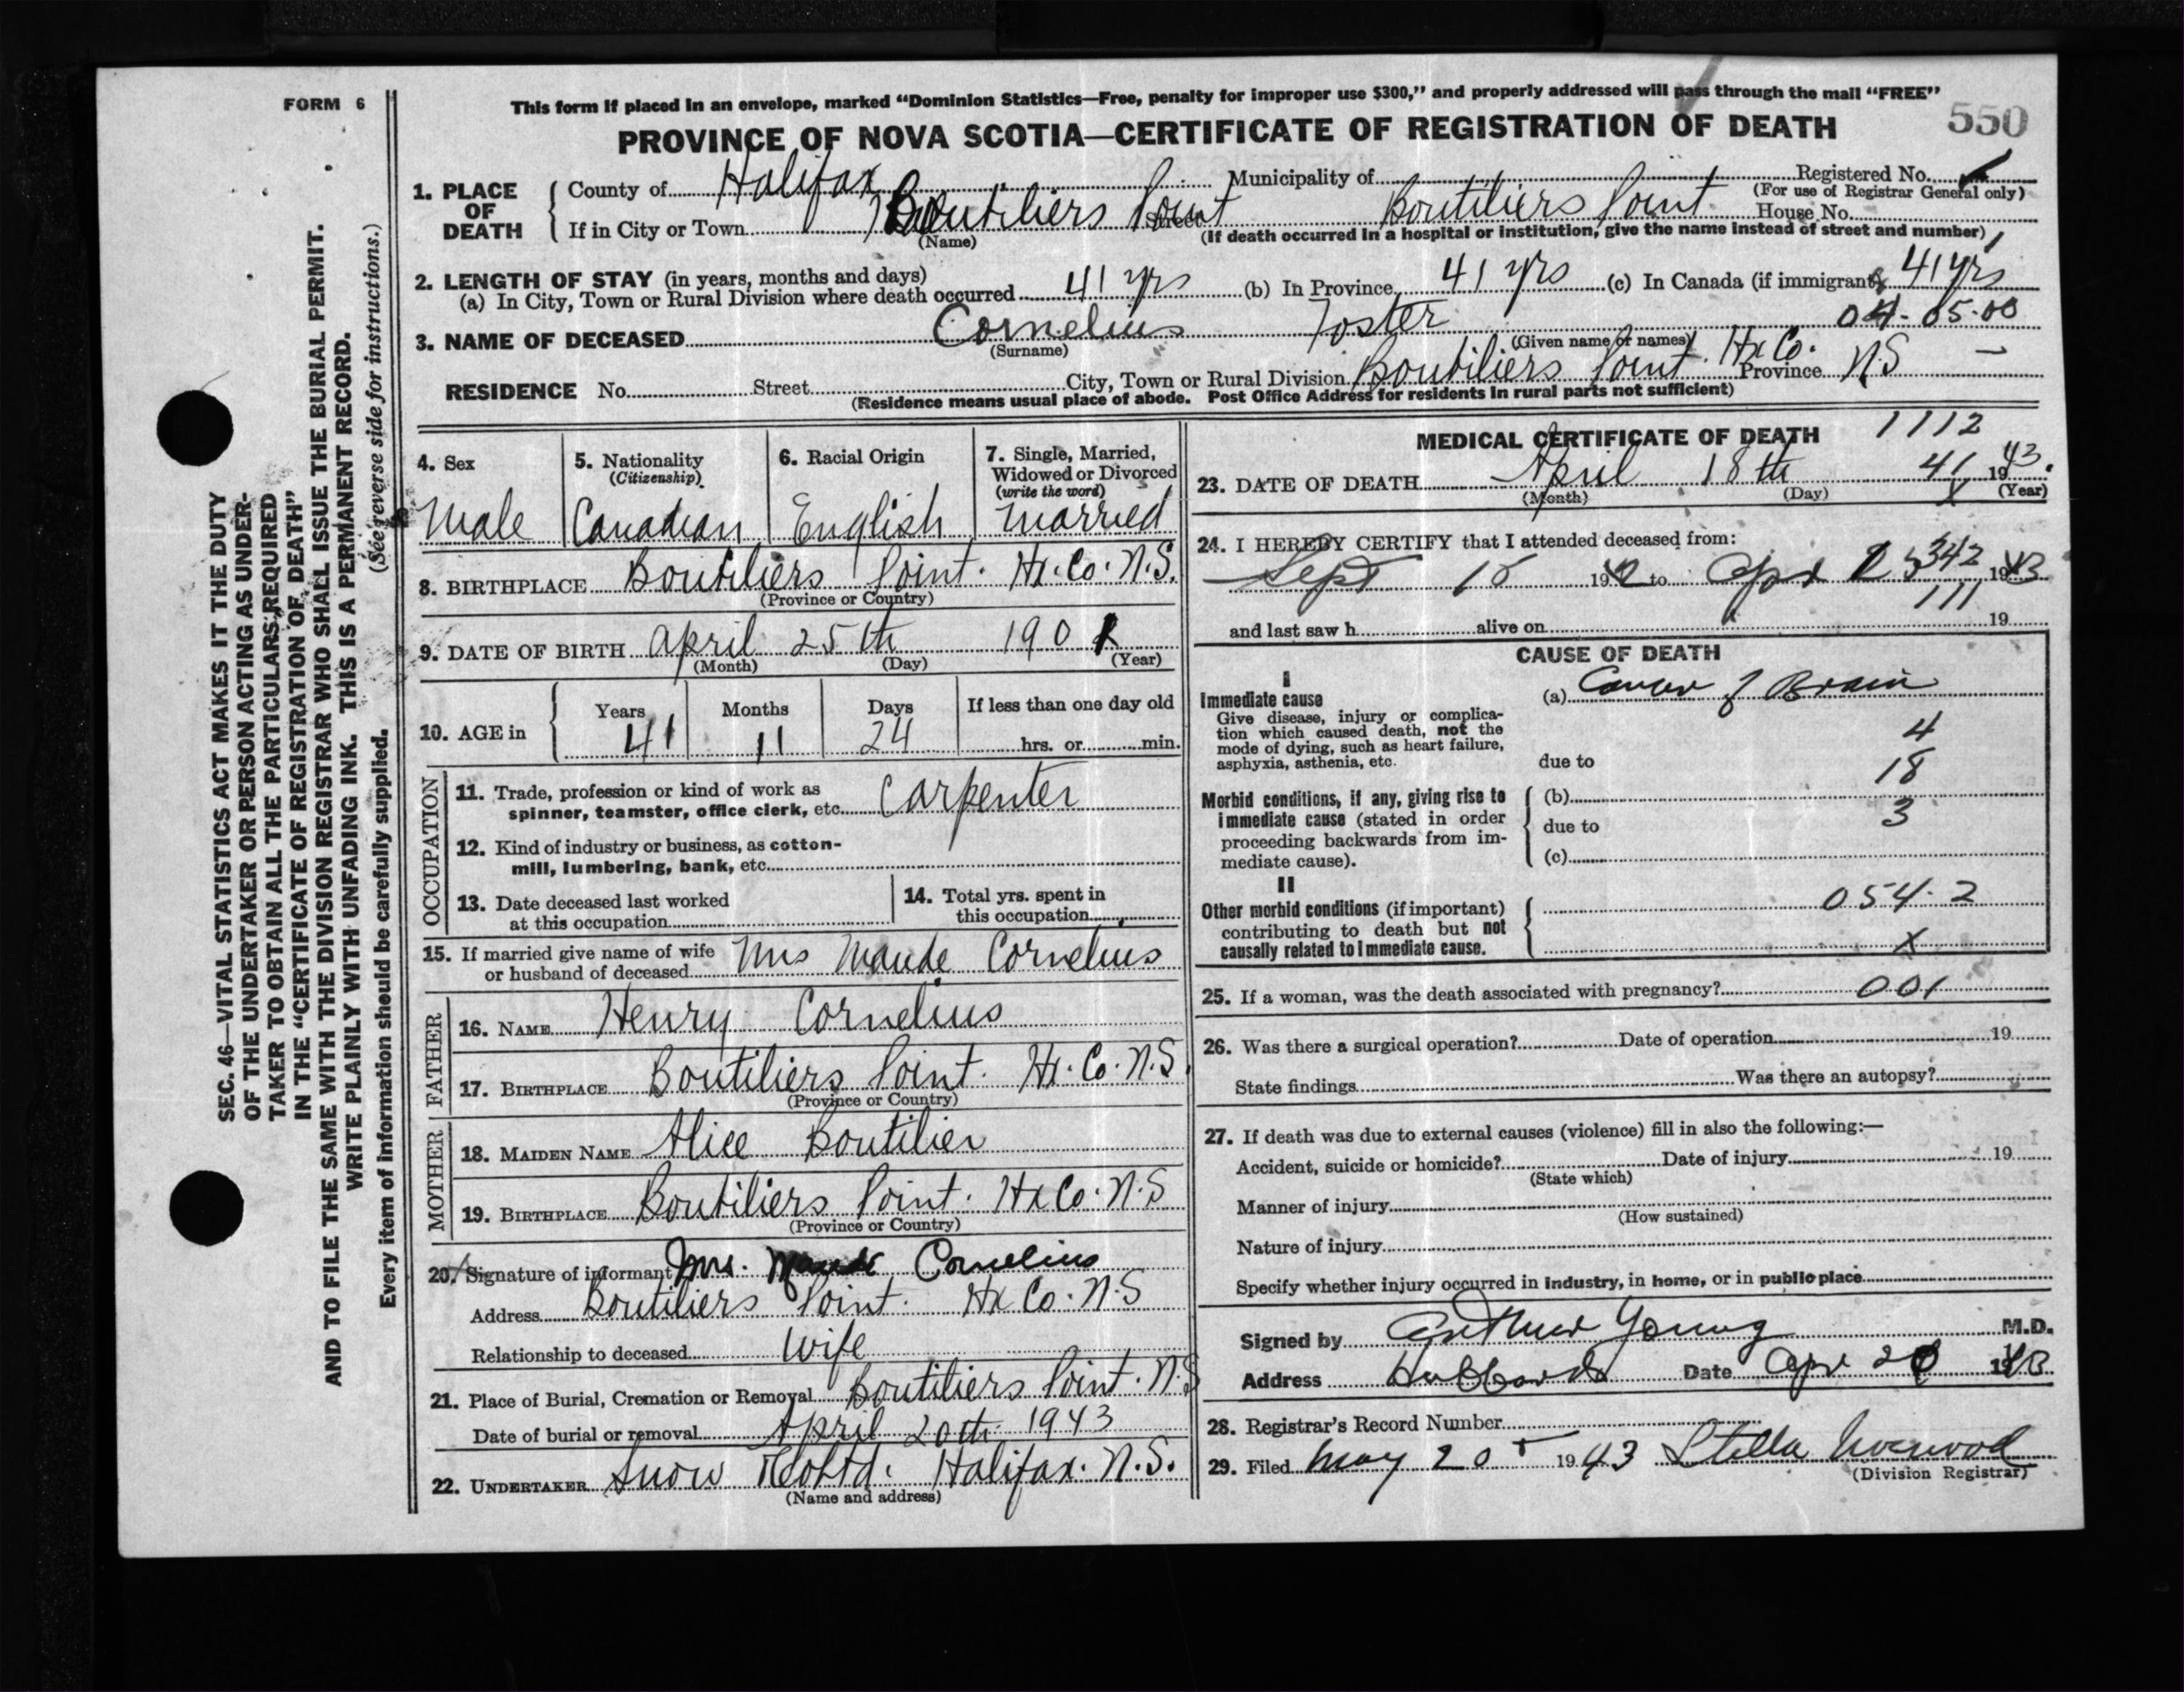 FORM 6
This form if placed in an envelope, marked “Dominion Statistics—Free, penalty for improper use $300,” and properly addressed will pass through the mail “FREE”
PROVINCE OF NOVA SCOTIA—CERTIFICATE OF REGISTRATION OF DEATH
550
1. PLACE OF DEATH
County of Halifax Municipality of Registered No.
(For use of Registrar General only)
If in City or Town Boutiliers Point Street Boutiliers Point House No.
(Name) (If death occurred in a hospital or institution, give the name instead of street and number)
2. LENGTH OF STAY (in years, months and days)
(a) In City, Town or Rural Division where death occurred 41 yrs (b) In Province 41 yrs (c) In Canada (if immigrant) 41 yrs
04-05-00
3. NAME OF DECEASED Cornelius Foster
(Surname) (Given name or names)
RESIDENCE No. Street City, Town or Rural Division Boutiliers Point. Hx Co. Province N.S
(Residence means usual place of abode. Post Office Address for residents in rural parts not sufficient)
4. Sex
Male
5. Nationality
(Citizenship)
Canadian
6. Racial Origin
English
7. Single, Married,
Widowed or Divorced
(write the word)
Married
8. BIRTHPLACE Boutiliers Point. Hx. Co. N.S.
(Province or Country)
9. DATE OF BIRTH April 25th 1901
(Month) (Day) (Year)
10. AGE in
Years Months Days If less than one day old
41 11 24 hrs. or min.
OCCUPATION
11. Trade, profession or kind of work as
spinner, teamster, office clerk, etc. Carpenter
12. Kind of industry or business, as cotton-
mill, lumbering, bank, etc.
13. Date deceased last worked
at this occupation
14. Total yrs. spent in
this occupation
15. If married give name of wife
or husband of deceased Mrs Maude Cornelius
FATHER
16. NAME Henry Cornelius
17. BIRTHPLACE Boutiliers Point. Hx. Co. N.S.
(Province or Country)
MOTHER
18. MAIDEN NAME Alice Boutilier
19. BIRTHPLACE Boutiliers Point. Hx Co. N.S
(Province or Country)
20. Signature of informant Mrs. Maude Cornelius
Address Boutiliers Point. Hx Co. N.S
Relationship to deceased Wife
21. Place of Burial, Cremation or Removal Boutiliers Point. N.S
Date of burial or removal April 20th 1943
22. UNDERTAKER Snow & Co Ltd. Halifax. N.S.
(Name and address)
MEDICAL CERTIFICATE OF DEATH
1112
23. DATE OF DEATH April 18th 41 1943.
(Month) (Day) (Year)
X
24. I HEREBY CERTIFY that I attended deceased from:
Sept 18 1942 to Apr 1943
342
111
and last saw h alive on 19
CAUSE OF DEATH
I
Immediate cause
Give disease, injury or complica-
tion which caused death, not the
mode of dying, such as heart failure,
asphyxia, asthenia, etc.
(a) Cancer of Brain
4
due to
18
Morbid conditions, if any, giving rise to
immediate cause (stated in order
proceeding backwards from im-
mediate cause).
(b)
3
due to
(c)
II
Other morbid conditions (if important)
contributing to death but not
causally related to immediate cause.
054.2
X
25. If a woman, was the death associated with pregnancy? 001
26. Was there a surgical operation? Date of operation 19
State findings Was there an autopsy?
27. If death was due to external causes (violence) fill in also the following:—
Accident, suicide or homicide? Date of injury 19
(State which)
Manner of injury
(How sustained)
Nature of injury
Specify whether injury occurred in industry, in home, or in public place
Signed by Arthur Young M.D.
Address Hubbards Date Apr 20 1943
28. Registrar's Record Number
29. Filed May 20 1943 Stella Norwood
(Division Registrar)
SEC. 46—VITAL STATISTICS ACT MAKES IT THE DUTY
OF THE UNDERTAKER OR PERSON ACTING AS UNDER-
TAKER TO OBTAIN ALL THE PARTICULARS REQUIRED
IN THE “CERTIFICATE OF REGISTRATION OF DEATH”
AND TO FILE THE SAME WITH THE DIVISION REGISTRAR WHO SHALL ISSUE THE BURIAL PERMIT.
WRITE PLAINLY WITH UNFADING INK. THIS IS A PERMANENT RECORD.
(See reverse side for instructions.)
Every item of information should be carefully supplied.